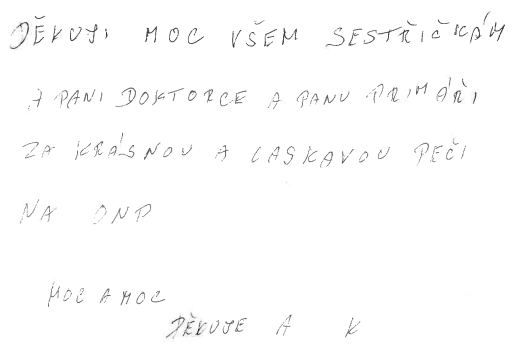 DĚKUJI MOC VŠEM SESTŘIČKÁM
A PANI DOKTORCE A PANU PRIMÁŘI
ZA KRÁSNOU A LASKAVOU PEČI
NA ONP
MOC A MOC
DĚKUJE A K